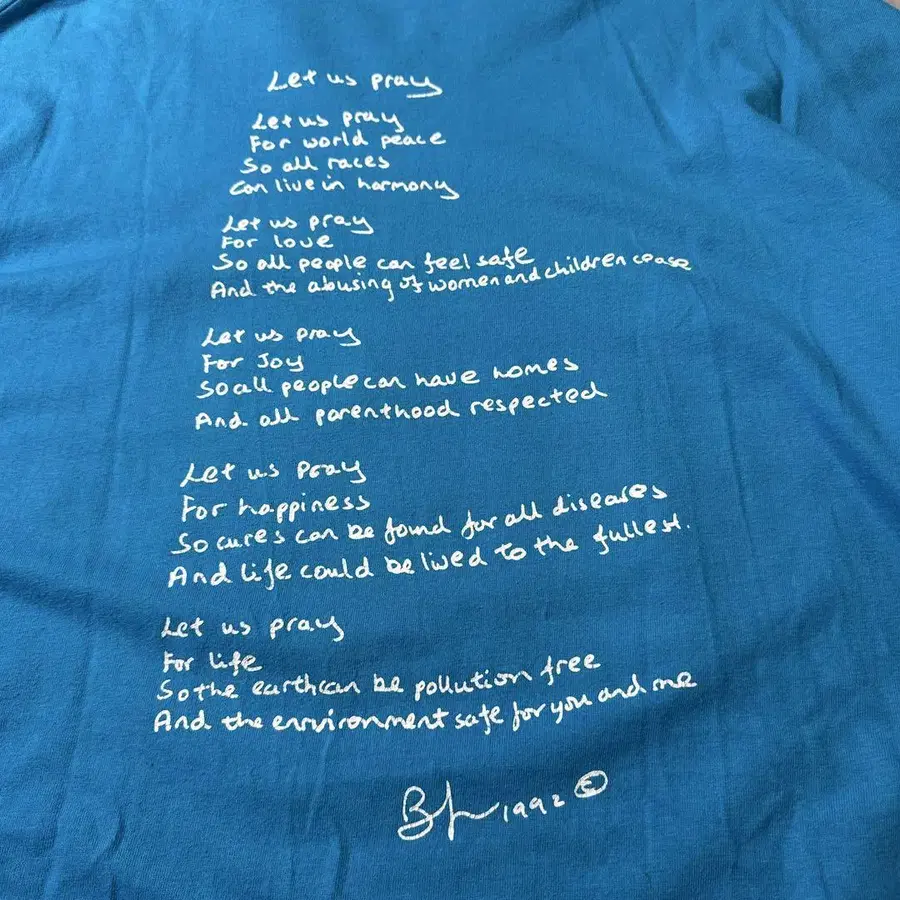 Let us pray
Let us pray
For world peace
So all races
Can live in harmony
Let us pray
For love
So all people can feel safe
And the abusing of women and children cease
Let us pray
For Joy
So all people can have homes
And all parenthood respected
Let us pray
For happiness
So cures can be found for all diseases
And life could be lived to the fullest.
Let us pray
For life
So the earth can be pollution free
And the environment safe for you and me
1992 ©